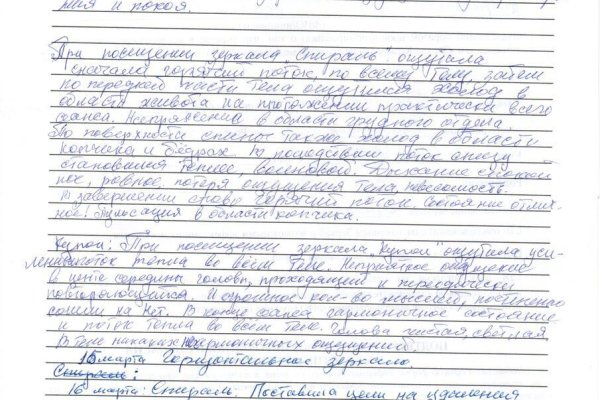 мия и покоя.
При посещении зеркала "Спираль" ощутила
сначала горячий поток, по всему телу, затем
по передней части тела ощущался холод в
области живота на протяжении практически всего
сеанса. Напряжение в области грудного отдела.
По поверхности спины также холод в области
копчика и бедрах. В последствии поток снизу
становился теплее, волновой. Дыхание спокой
ное, ровное, потеря ощущения тела, невесомость.
В завершении снова горячий поток. Состояние отлич-
ное. Пульсация в области копчика.
Купол: При посещении зеркала "Купол" ощутила уси-
ление поток тепла во всем теле. Неприятное ощущение
в центе середины головы, проходящий и периодически
повторяющийся. И огромное кол-во мыслей, постепенно
сошли на нет. В конце сеанса гармоничное состояние
и поток тепла во всем теле. Голова чистая, светлая
В теле никаких негармоничных ощущений.
15 марта Горизонтальное зеркало.
Спираль:
16 марта: Спираль. Поставила цели на удаления